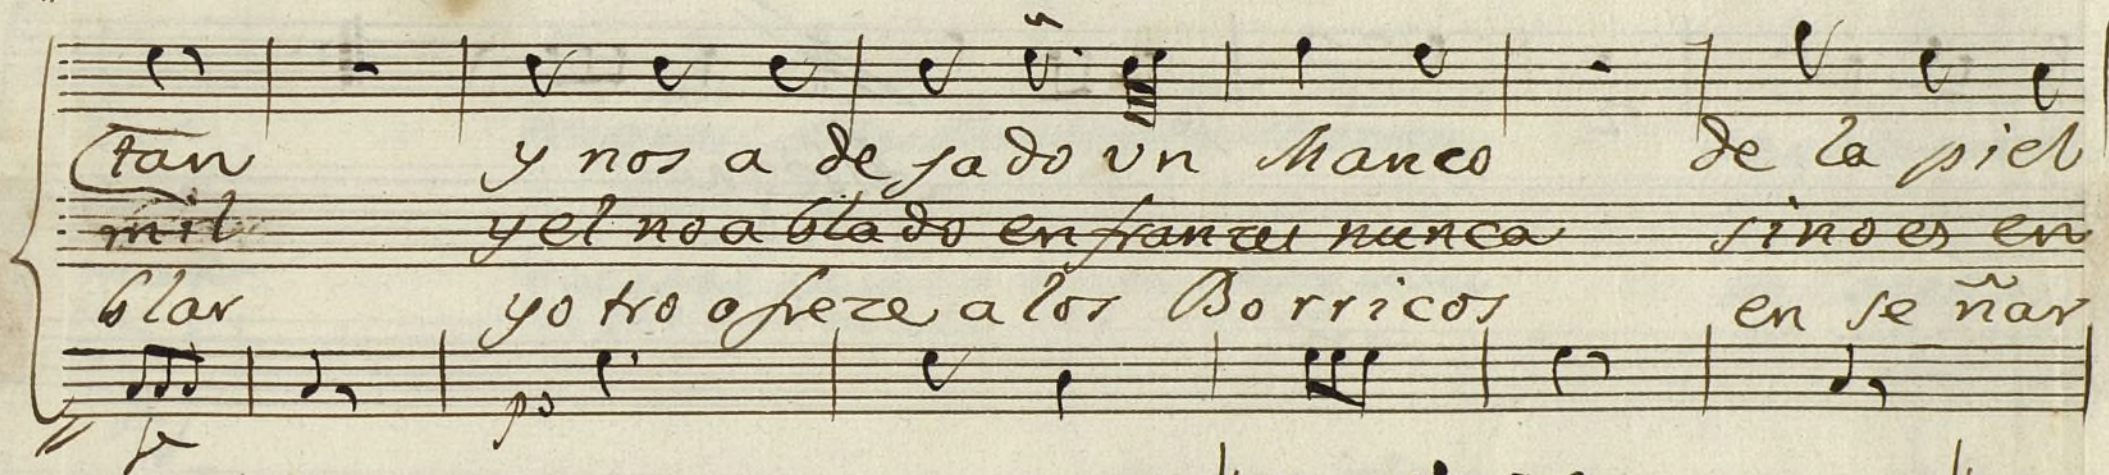 tan y nos a de jado un Manco de la piel
mil y el no a blado en franzes nunca sino es en
blar y otro ofreze a los Borricos en se ñar
po
f